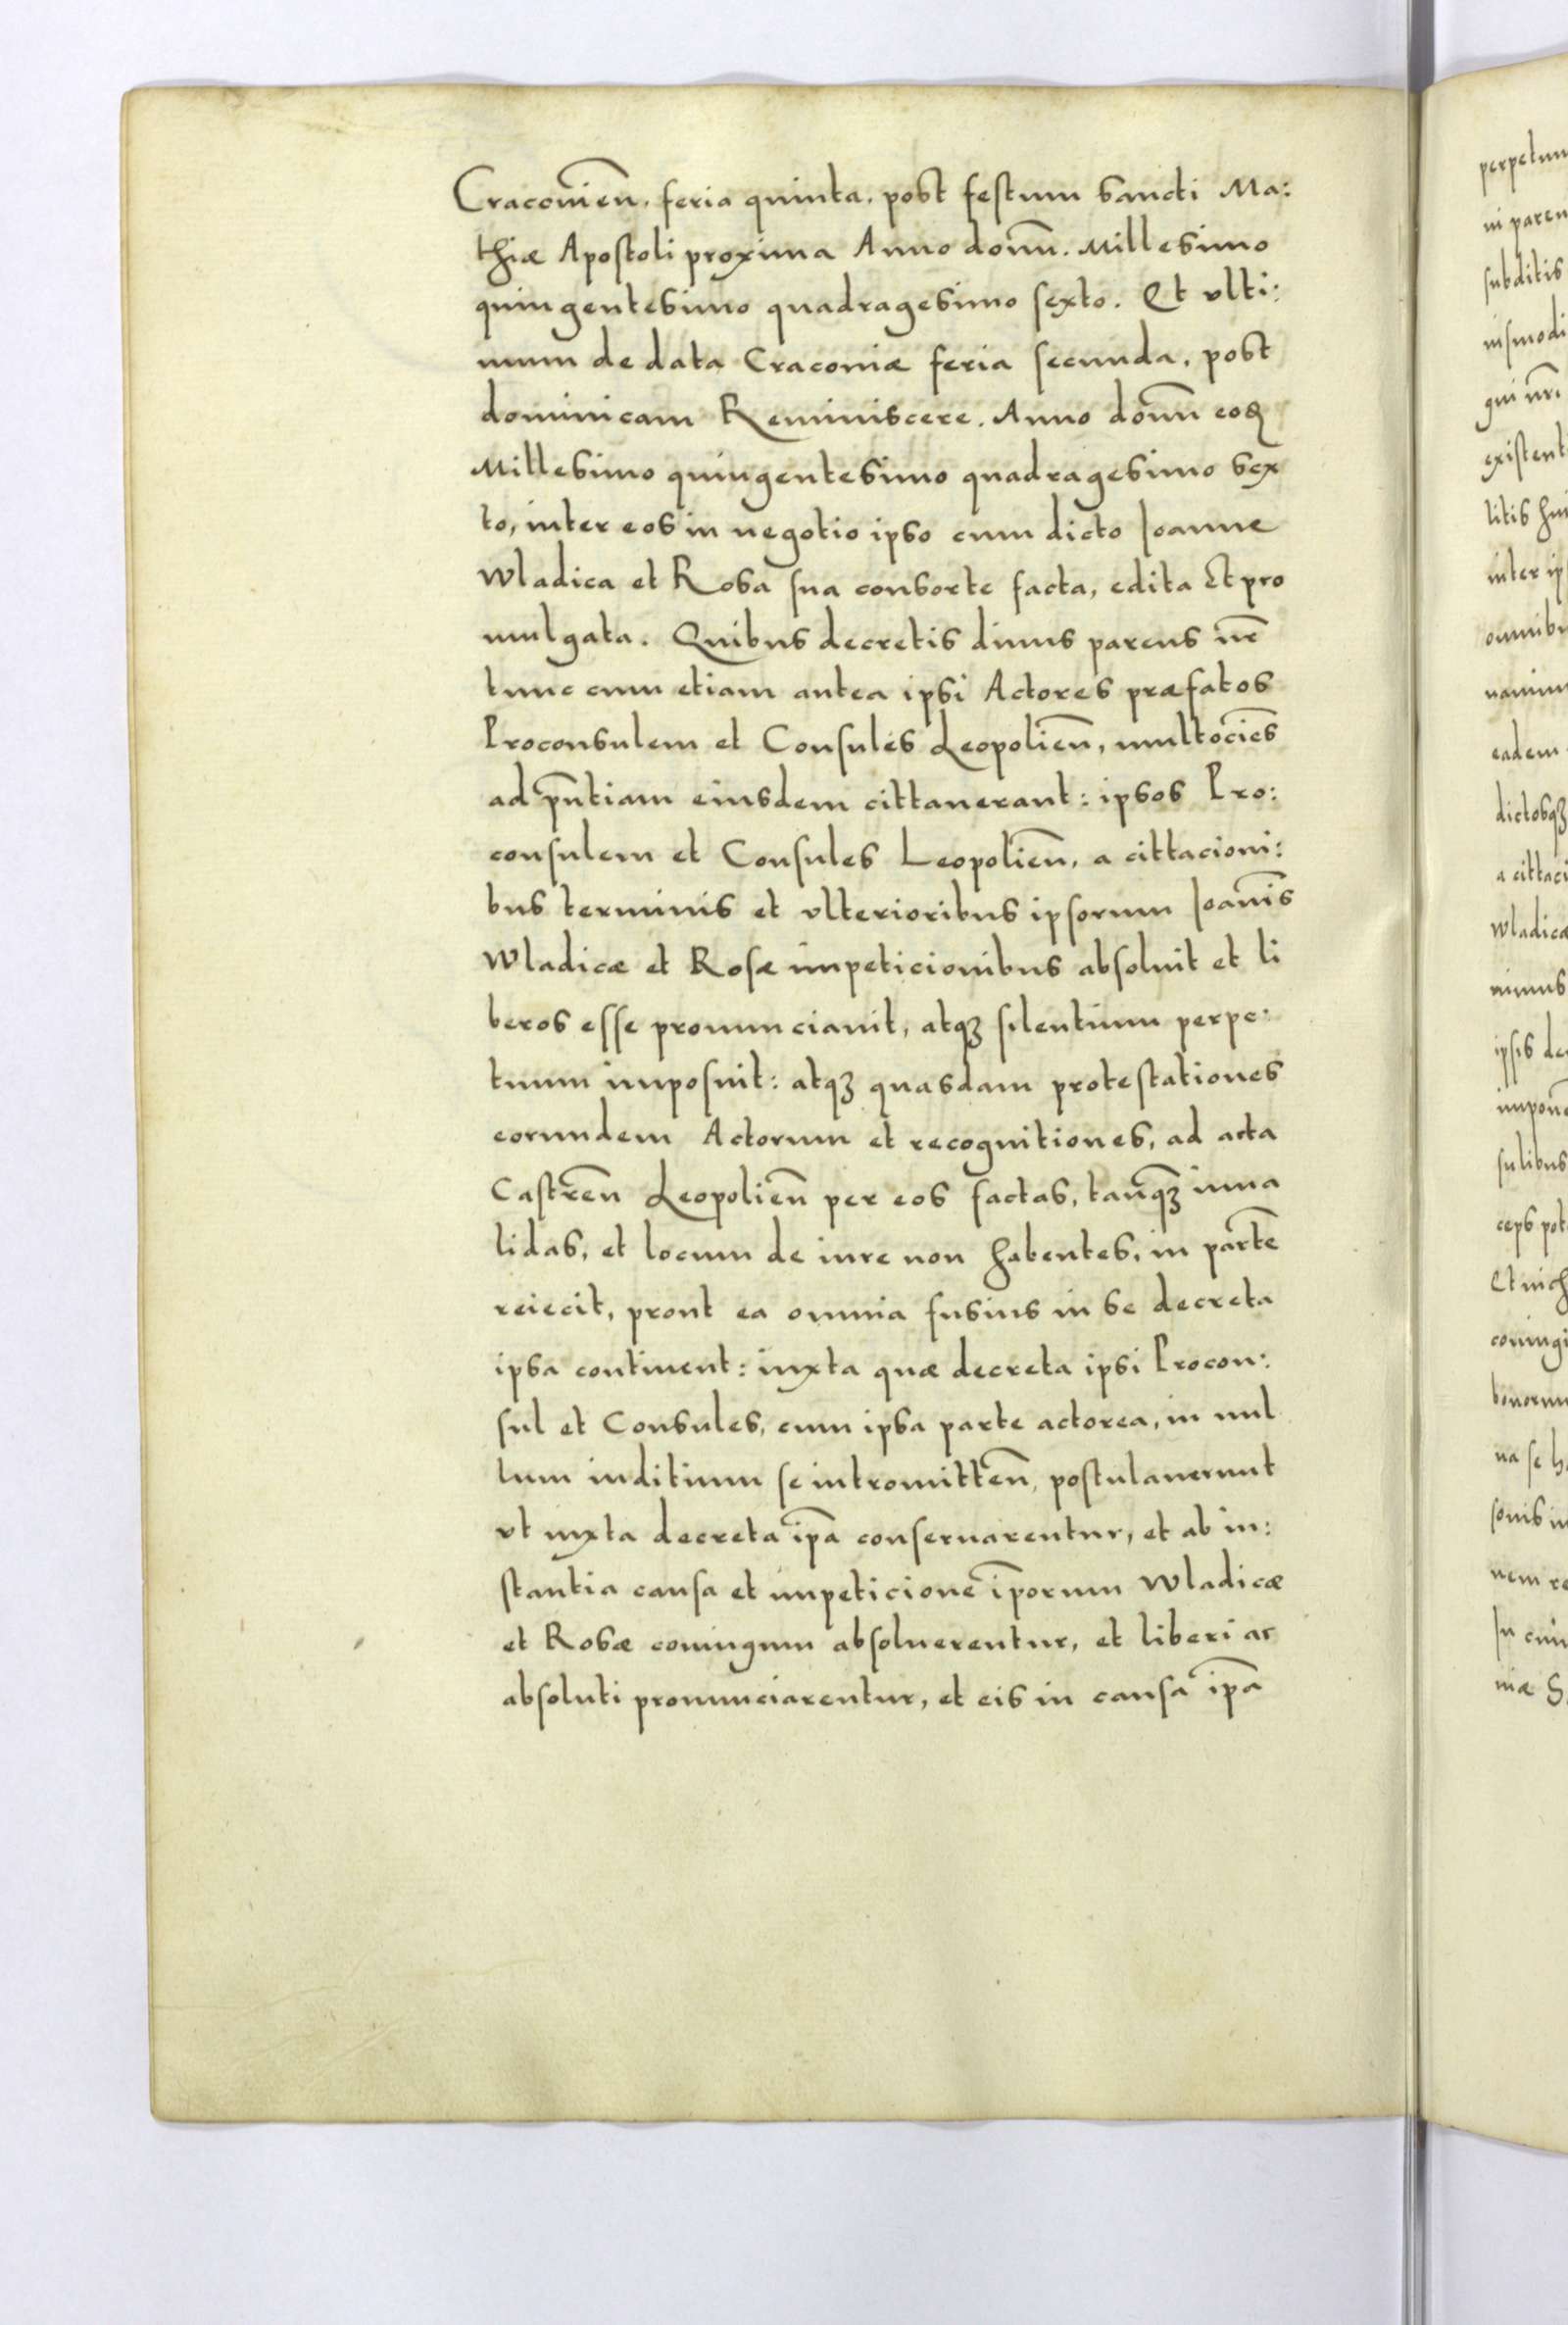 Cracouien̄. feria quinta. post festum sancti Ma:
thiæ Apostoli proxima Anno domī. Millesimo
quingentesimo quadragesimo sexto. Et vlti:
mum de data Cracouiæ feria secunda, post
dominicam Reminiscere. Anno domī eoḍ
Millesimo quingentesimo quadragesimo sex
to, inter eos in negotio ipso cum dicto Joanne
Wladica et Rosa sua consorte facta, edita Et pro
mulgata. Quibus decretis diuus parens nr̄
tunc cum etiam antea ipsi Actores præfatos
Proconsulem et Consules Leopolien̄, multocies̄
ad pn̄tiam eiusdem cittauerant: ipsos Pro:
consulem et Consules Leopolien̄, a cittacioni:
bus terminis et vlterioribus ipsorum Joan̄is
Wladicæ et Rosæ impeticionibus absoluit et li
beros esse pronunciauit, atqꝫ silentium perpe:
tuum imposuit: atqꝫ quasdam protestationes
eorundem Actorum et recognitiones, ad acta
Castren̄ Leopolien̄ per eos factas, tanq̄ꝫ inua
lidas, et locum de iure non habentes, in parte
reiecit, prout ea omnia fusius in se decreta
ipsa continent: iuxta quæ decreta ipsi Procon:
sul et Consules, cum ipsa parte actorea, in nul
lum iuditium se intromitten̄, postulauerunt
vt iuxta decreta ip̄a conseruarentur, et ab in:
stantia causa et impeticione ip̄orum Wladicæ
et Rosæ coniugum absoluerentur, et liberi ac
absoluti pronunciarentur, et eis in causa ip̄a
perpetuu
ni paren
subditis
uismodi
qui nr̄i
existent
litis hui
inter ip
omnibu
eadem
dictosqꝫ
a cittaci
Wladicæ
nimus
ipsis de
impone
sulibus
ceps pot
Et nich
coniugi
bonorum
na se h
sonis in
nem re
In cuiu
niæ S